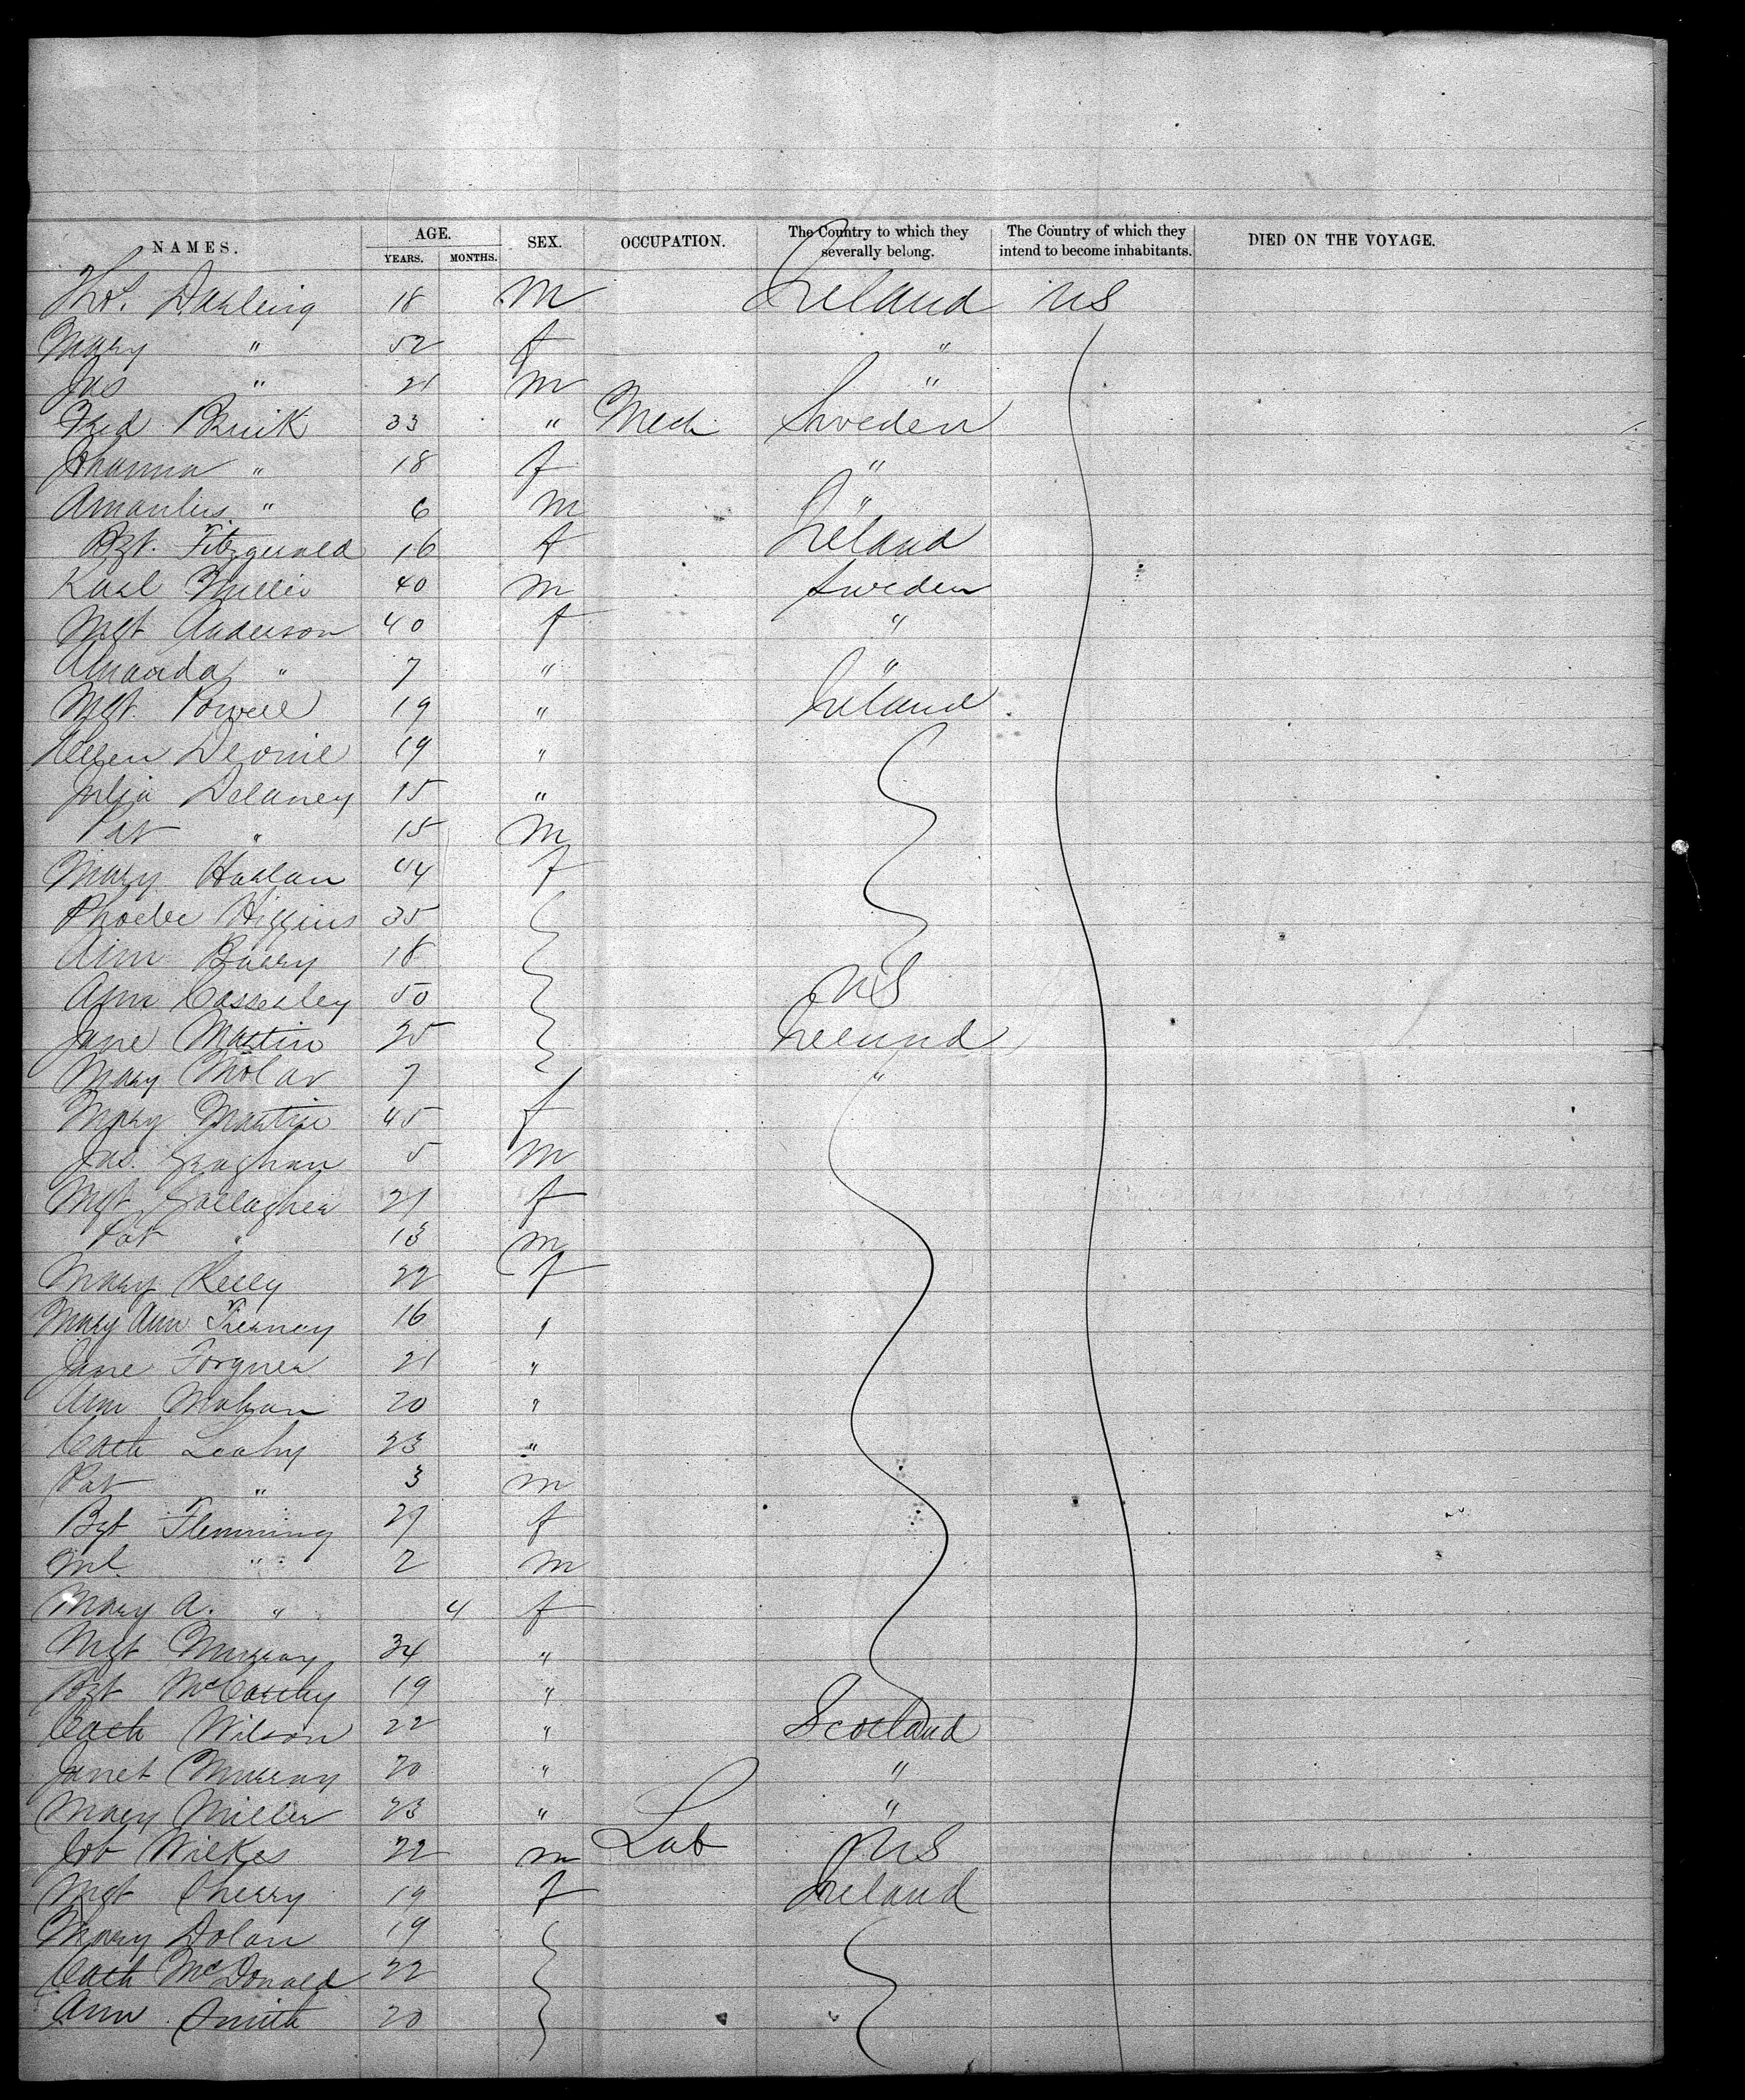 NAMES. AGE. YEARS. MONTHS. SEX. OCCUPATION. The Country to which they severally belong. The Country of which they intend to become inhabitants. DIED ON THE VOYAGE.
Thos. Darling 18 m Ireland US
Mary " 52 f "
Jas " 21 m "
Fred Bruik 33 " Mech Sweden
Johanna " 18 f "
" 6 m "
Bgt. Fitzgerald 16 f Ireland
Karl Muller 40 m Sweden
Mgt Anderson 40 f "
Amanda " 7 " "
Mgt. Powell 19 " Ireland
Ellen 19 "
Julia Delaney 15 "
Pat " 15 m
Mary Harlan 44 f
Phoebe Higgins 35
Ann Barry 18
Ann Casserley 50 US
Jane Martin 25 Ireland
Mary 7 "
Mary Martin 45 f
Jas. Geaghan 5 m
Mgt Gallagher 21 f
Pat " 13 m
Mary Kelly 22 f
Mary Ann Tierney 16 "
Jane Forgner 21 "
Ann Mahan 20 "
Cath Leahy 23 "
Pat " 3 m
Bgt Flemming 29 f
Ml " 2 m
Mary A. " 4 f
Mgt Murray 34 "
Bgt McCarthy 19 "
Cath Wilson 22 " Scotland
Janet Murray 20 " "
Mary Miller 23 " "
Job Wilkes 22 m Lab US
Mgt Cherry 19 f Ireland
Mary Dolan 19
Cath McDonald 22
Ann Smith 20